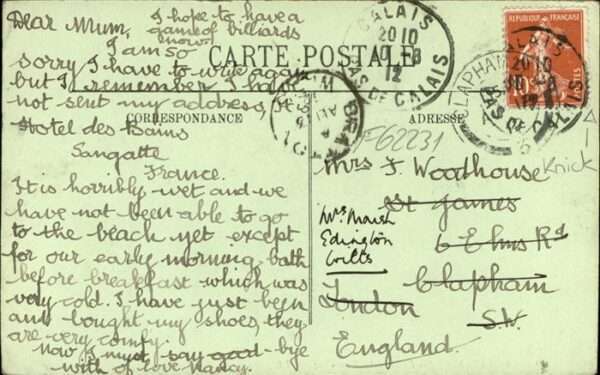 I hope to have a
game of billiards
now
Dear Mum,
I am so
sorry I have to write again
but I remember I had
not sent my address, it is
Hotel des Bains
Sangatte
France.
It is horribly wet and we
have not been able to go
to the beach yet except
for our early morning bath
before breakfast which was
very cold. I have just been
and bought my shoes, they
are very comfy.
Now I must say good-bye
with of love Nancy.
CARTE POSTALE
CORRESPONDANCE
ADRESSE
F62231
Mrs F. Woodhouse
St James
6 Elms Rd
Clapham
London
S.W.
England.
Mrs Marsh
Edington
Wilts
Knick
REPUBLIQUE FRANÇAISE
10
POSTES
CALAIS
20 10
12
PAS DE CALAIS
CLAPHAM
CALAIS
20 10
PAS DE CALAIS